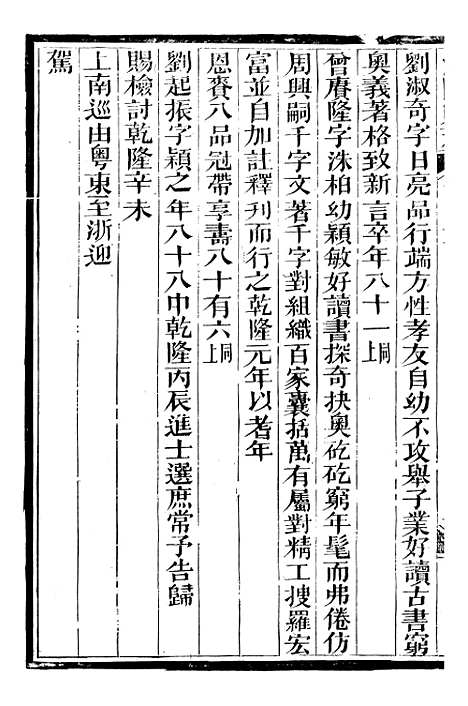 劉淑奇字日亮品行端方性孝友自幼不攻舉子業好讀古書窮
奧義著格致新言卒年八十一同上
曾賡隆字洙柏幼穎敏好讀書探奇抉奧矻矻窮年髦而弗倦仿
周興嗣千字文著千字對組織百家囊括萬有屬對精工搜羅宏
富並自加註釋刋而行之乾隆元年以耆年
恩賚八品冠帶享壽八十有六同上
劉起振字穎之年八十八中乾隆丙辰進士選庶常予告歸
賜檢討乾隆辛未
上南巡由粵東至浙迎
駕